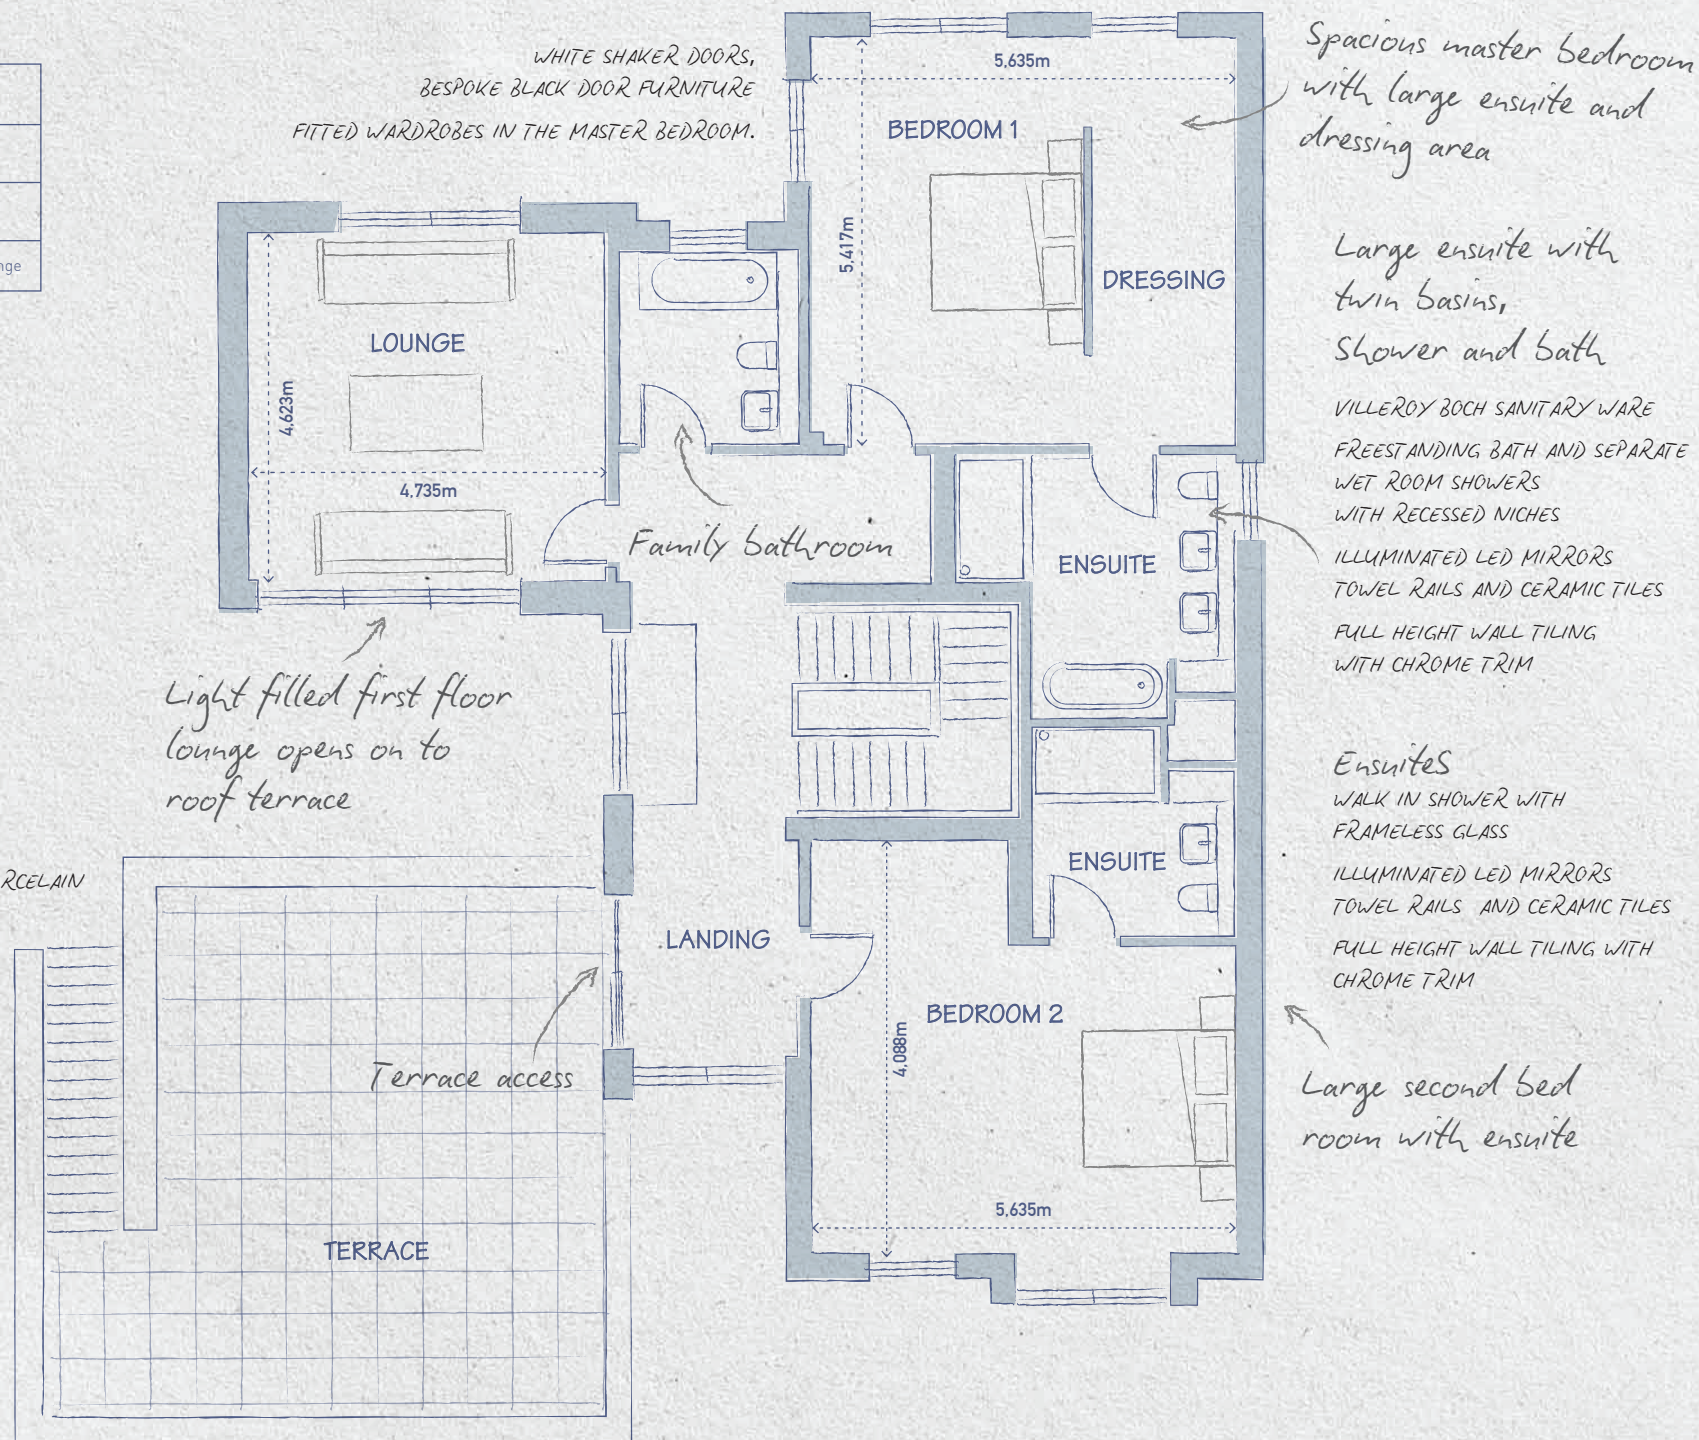 WHITE SHAKER DOORS,
BESPOKE BLACK DOOR FURNITURE
FITTED WARDROBES IN THE MASTER BEDROOM.
5,635m
BEDROOM 1
5,417m
DRESSING
Spacious master bedroom
with large ensuite and
dressing area
LOUNGE
4,623m
4,735m
Family bathroom
Large ensuite with
twin basins,
Shower and bath
VILLEROY BOCH SANITARY WARE
FREESTANDING BATH AND SEPARATE
WET ROOM SHOWERS
WITH RECESSED NICHES
ILLUMINATED LED MIRRORS
TOWEL RAILS AND CERAMIC TILES
FULL HEIGHT WALL TILING
WITH CHROME TRIM
ENSUITE
Light filled first floor
lounge opens on to
roof terrace
EnsuiteS
WALK IN SHOWER WITH
FRAMELESS GLASS
ILLUMINATED LED MIRRORS
TOWEL RAILS AND CERAMIC TILES
FULL HEIGHT WALL TILING WITH
CHROME TRIM
ENSUITE
RCELAIN
LANDING
Terrace access
BEDROOM 2
4,088m
5,635m
Large second bed
room with ensuite
TERRACE
nge